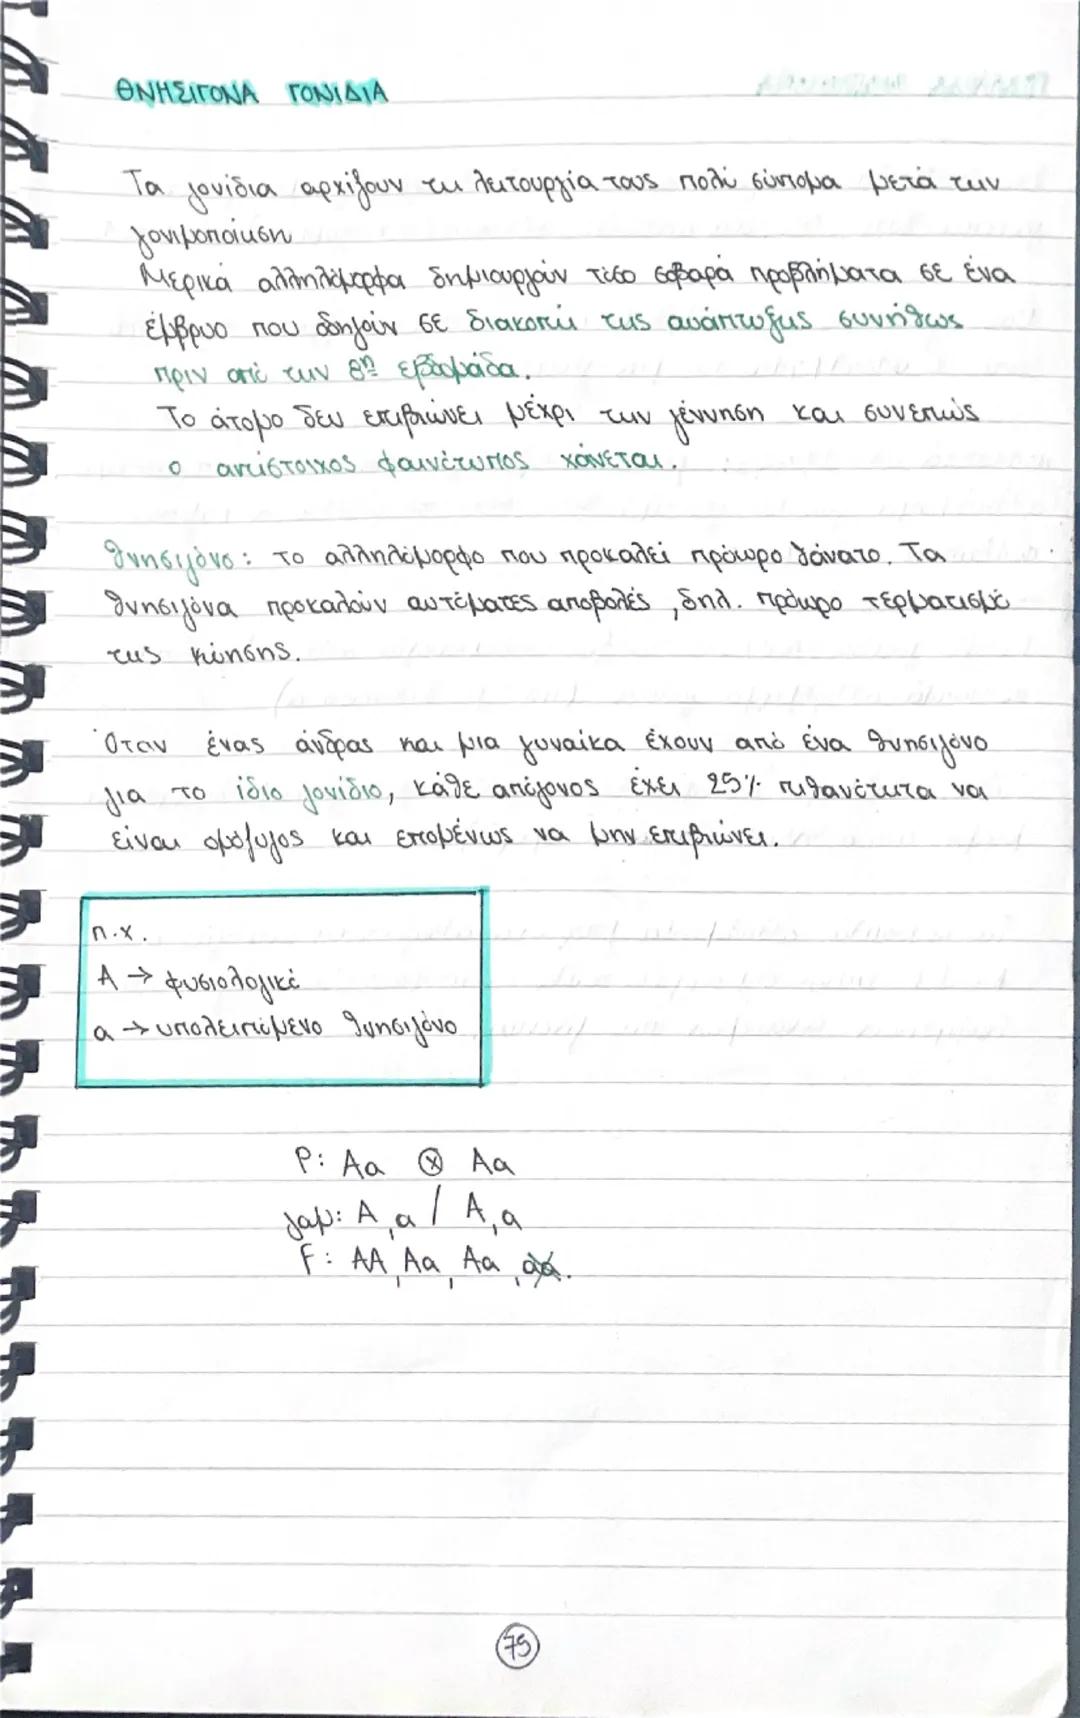 ΘΝΗΣΙΓΟΝΑ ΓΟΝΙΔΙΑ
Τα γονίδια αρχίζουν τη λειτουργία τους πολύ σύντομα μετά την
γονιμοποίηση
Μερικά αλληλόμορφα δημιουργούν τόσο σοβαρά προβλήματα σε ένα
έμβρυο που οδηγούν σε διακοπή της ανάπτυξης συνήθως
πριν από την 8η εβδομάδα.
Το άτομο δεν επιβιώνει μέχρι την γέννηση και συνεπώς
ο αντίστοιχος φαινότυπος χάνεται.
θνησιγόνο: το αλληλόμορφο που προκαλεί πρόωρο θάνατο. Τα
θνησιγόνα προκαλούν αυτόματες αποβολές, δηλ. πρόωρο τερματισμό
της κύησης.
Όταν ένας άνδρας και μια γυναίκα έχουν από ένα θνησιγόνο
για το ίδιο γονίδιο, κάθε απόγονος έχει 25% πιθανότητα να
είναι ομόζυγος και επομένως να μην επιβιώνει.
π.χ.
Α → φυσιολογικό
α → υπολειπόμενο θνησιγόνο
P: Αα ⊗ Αα
γαμ: Α, α / Α, α
F: ΑΑ, Αα, Αα, αα.
75